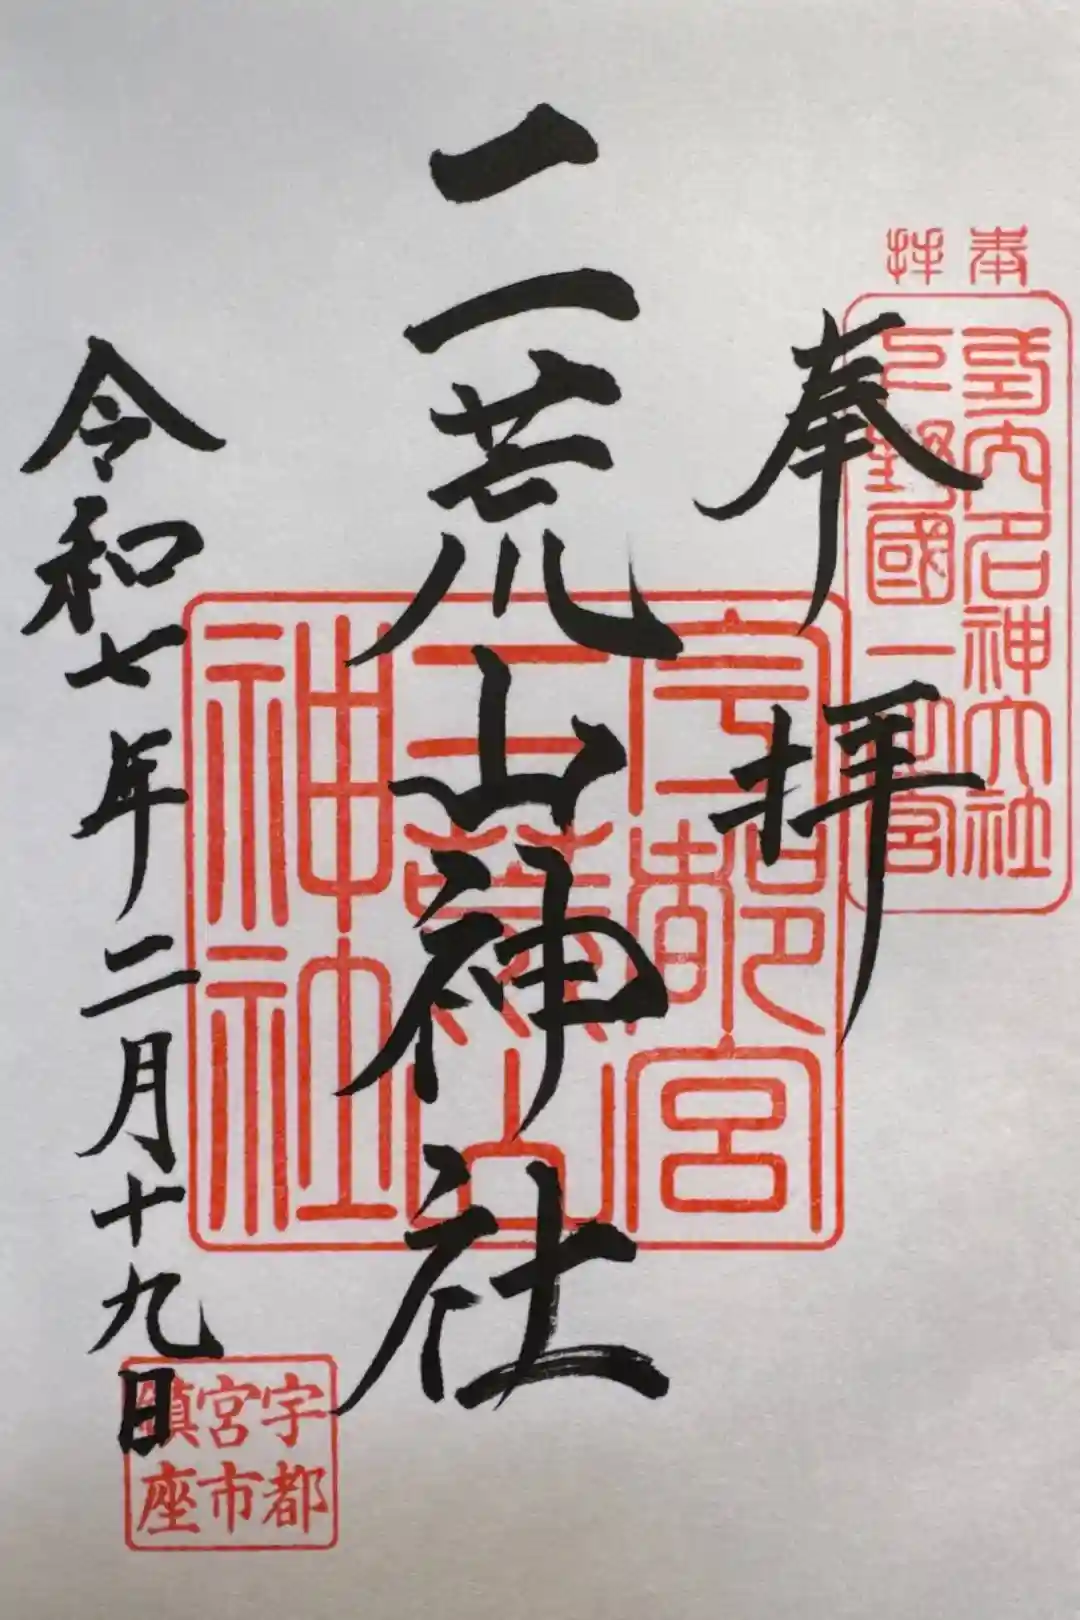 奉拝
式内名神大社
下野國一之宮
奉拝
二荒山神社
宇都宮
二荒山
神社
令和七年二月十九日
宇都
宮市
鎮座